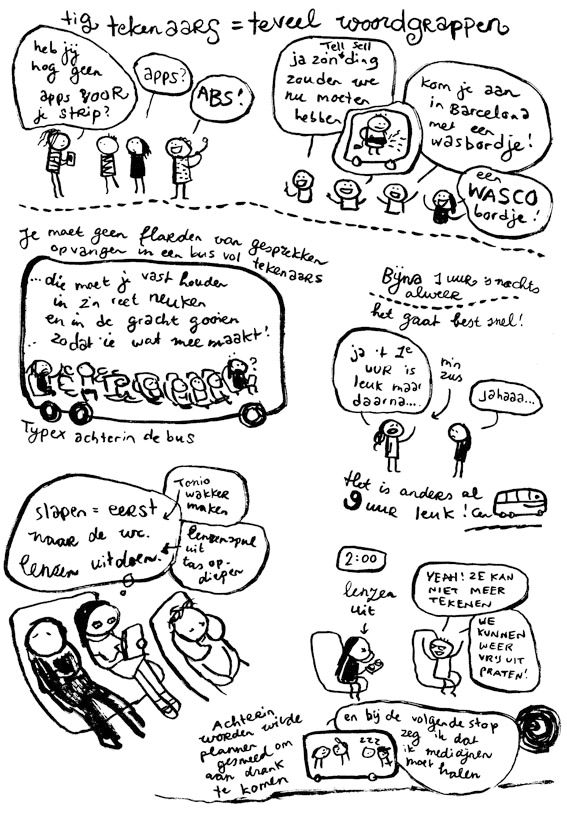 tig tekenaars = teveel woordgrappen
heb jij
nog geen
apps VOOR
je strip?
apps?
ABS!
Tell Sell
ja zon ding
zouden we
nu moeten
hebben
kom je aan
in Barcelona
met een
wasbordje!
een
WASCO
bordje!
Je moet geen flarden van gesprekken
opvangen in een bus vol tekenaars
...die moet je vast houden
in z'n reet neuken
en in de gracht gooien
zodat ie wat mee maakt!
?
Typex achterin de bus
Bijna 1 uur 's nachts
alweer
het gaat best snel!
ja 't 1e
UUR is
leuk maar
daarna...
min
zus
jahaaa...
Het is anders al
9 uur leuk!
slapen = eerst
naar de wc.
lenzen uitdoen.
Tonio
wakker
maken
lenzenspul
uit
tas op-
diepen
2:00
lenzen
uit
YEAH! ZE KAN
NIET MEER
TEKENEN
WE
KUNNEN
WEER
VRIJ UIT
PRATEN!
Achterin
worden wilde
plannen
gesmeed om
aan drank
te komen
en bij de volgende stop
zeg ik dat
ik medicijnen
moet halen
zzz